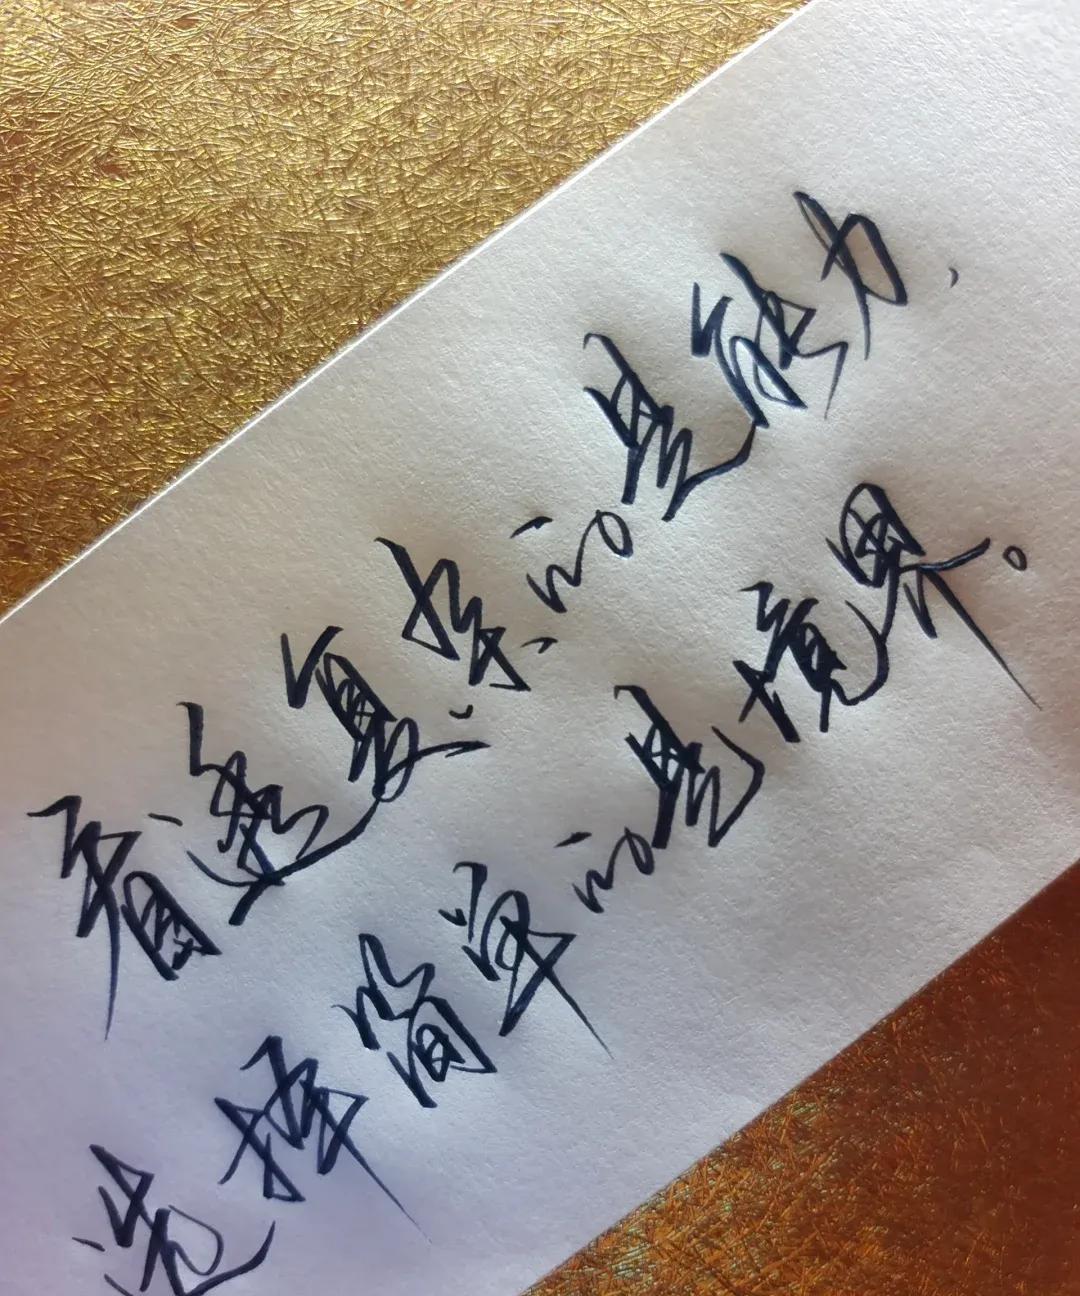 看透复杂的是能力，
选择简单的是境界。